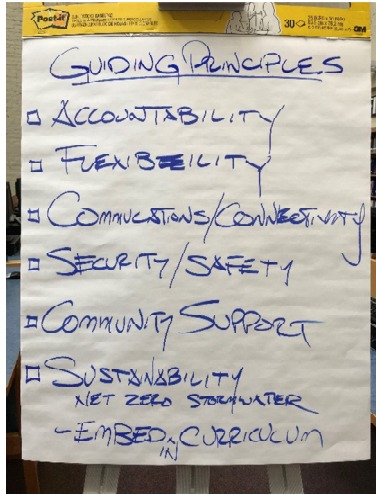 Post-it
30
3M
GUIDING PRINCIPLES
ACCOUNTABILITY
FLEXIBILITY
COMMUCATIONS/CONNECTIVITY
SECURITY/SAFETY
COMMUNITY SUPPORT
SUSTAINABILITY
NET ZERO STORMWATER
- EMBED IN CURRICULUM